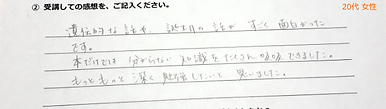 ② 受講しての感想を、ご記入ください。
20代 女性
遺伝的な話や、誕生月の話がすごく面白かった
です。
本だけでは分からない知識をたくさん できました。
もっともっと深く勉強したいと思いました。